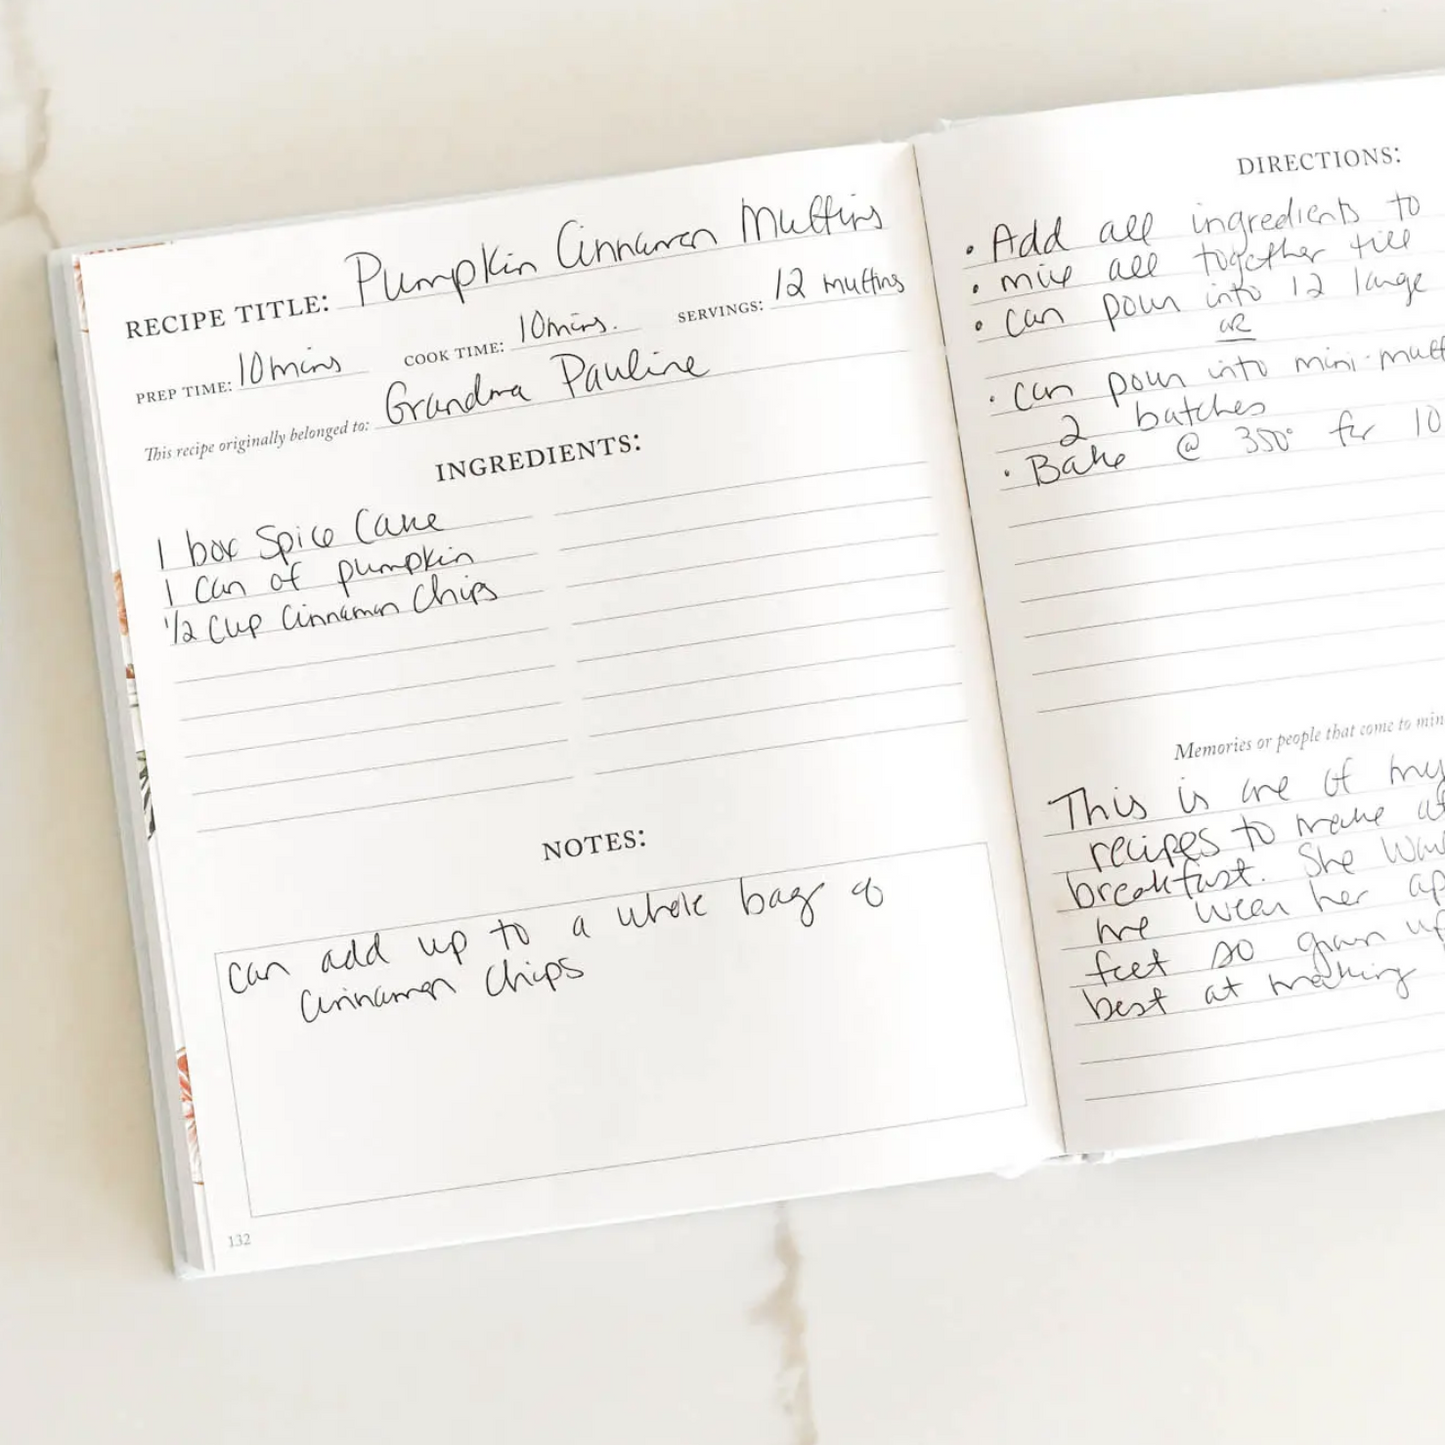 RECIPE TITLE: Pumpkin Cinnamon Muffins
PREP TIME: 10mins COOK TIME: 10mins. SERVINGS: 12 muffins
This recipe originally belonged to: Grandma Pauline
INGREDIENTS:
1 box Spice Cake
1 Can of pumpkin
1/2 Cup Cinnamon Chips
NOTES:
Can add up to a whole bag of
Cinnamon Chips
132
DIRECTIONS:
• Add all ingredients to
• mix all together till
• Can pour into 12 large
OR
• Can pour into mini-muff
2 batches
• Bake @ 350° for 10
Memories or people that come to min
This is one of my
recipes to make
breakfast. She
me wear her ap
feet so grown up
best at making